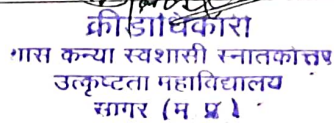 क्रीडाधिकारी
शास कन्या स्वशासी स्नातकोत्तर
उत्कृष्टता महाविद्यालय
सागर (म प्र)